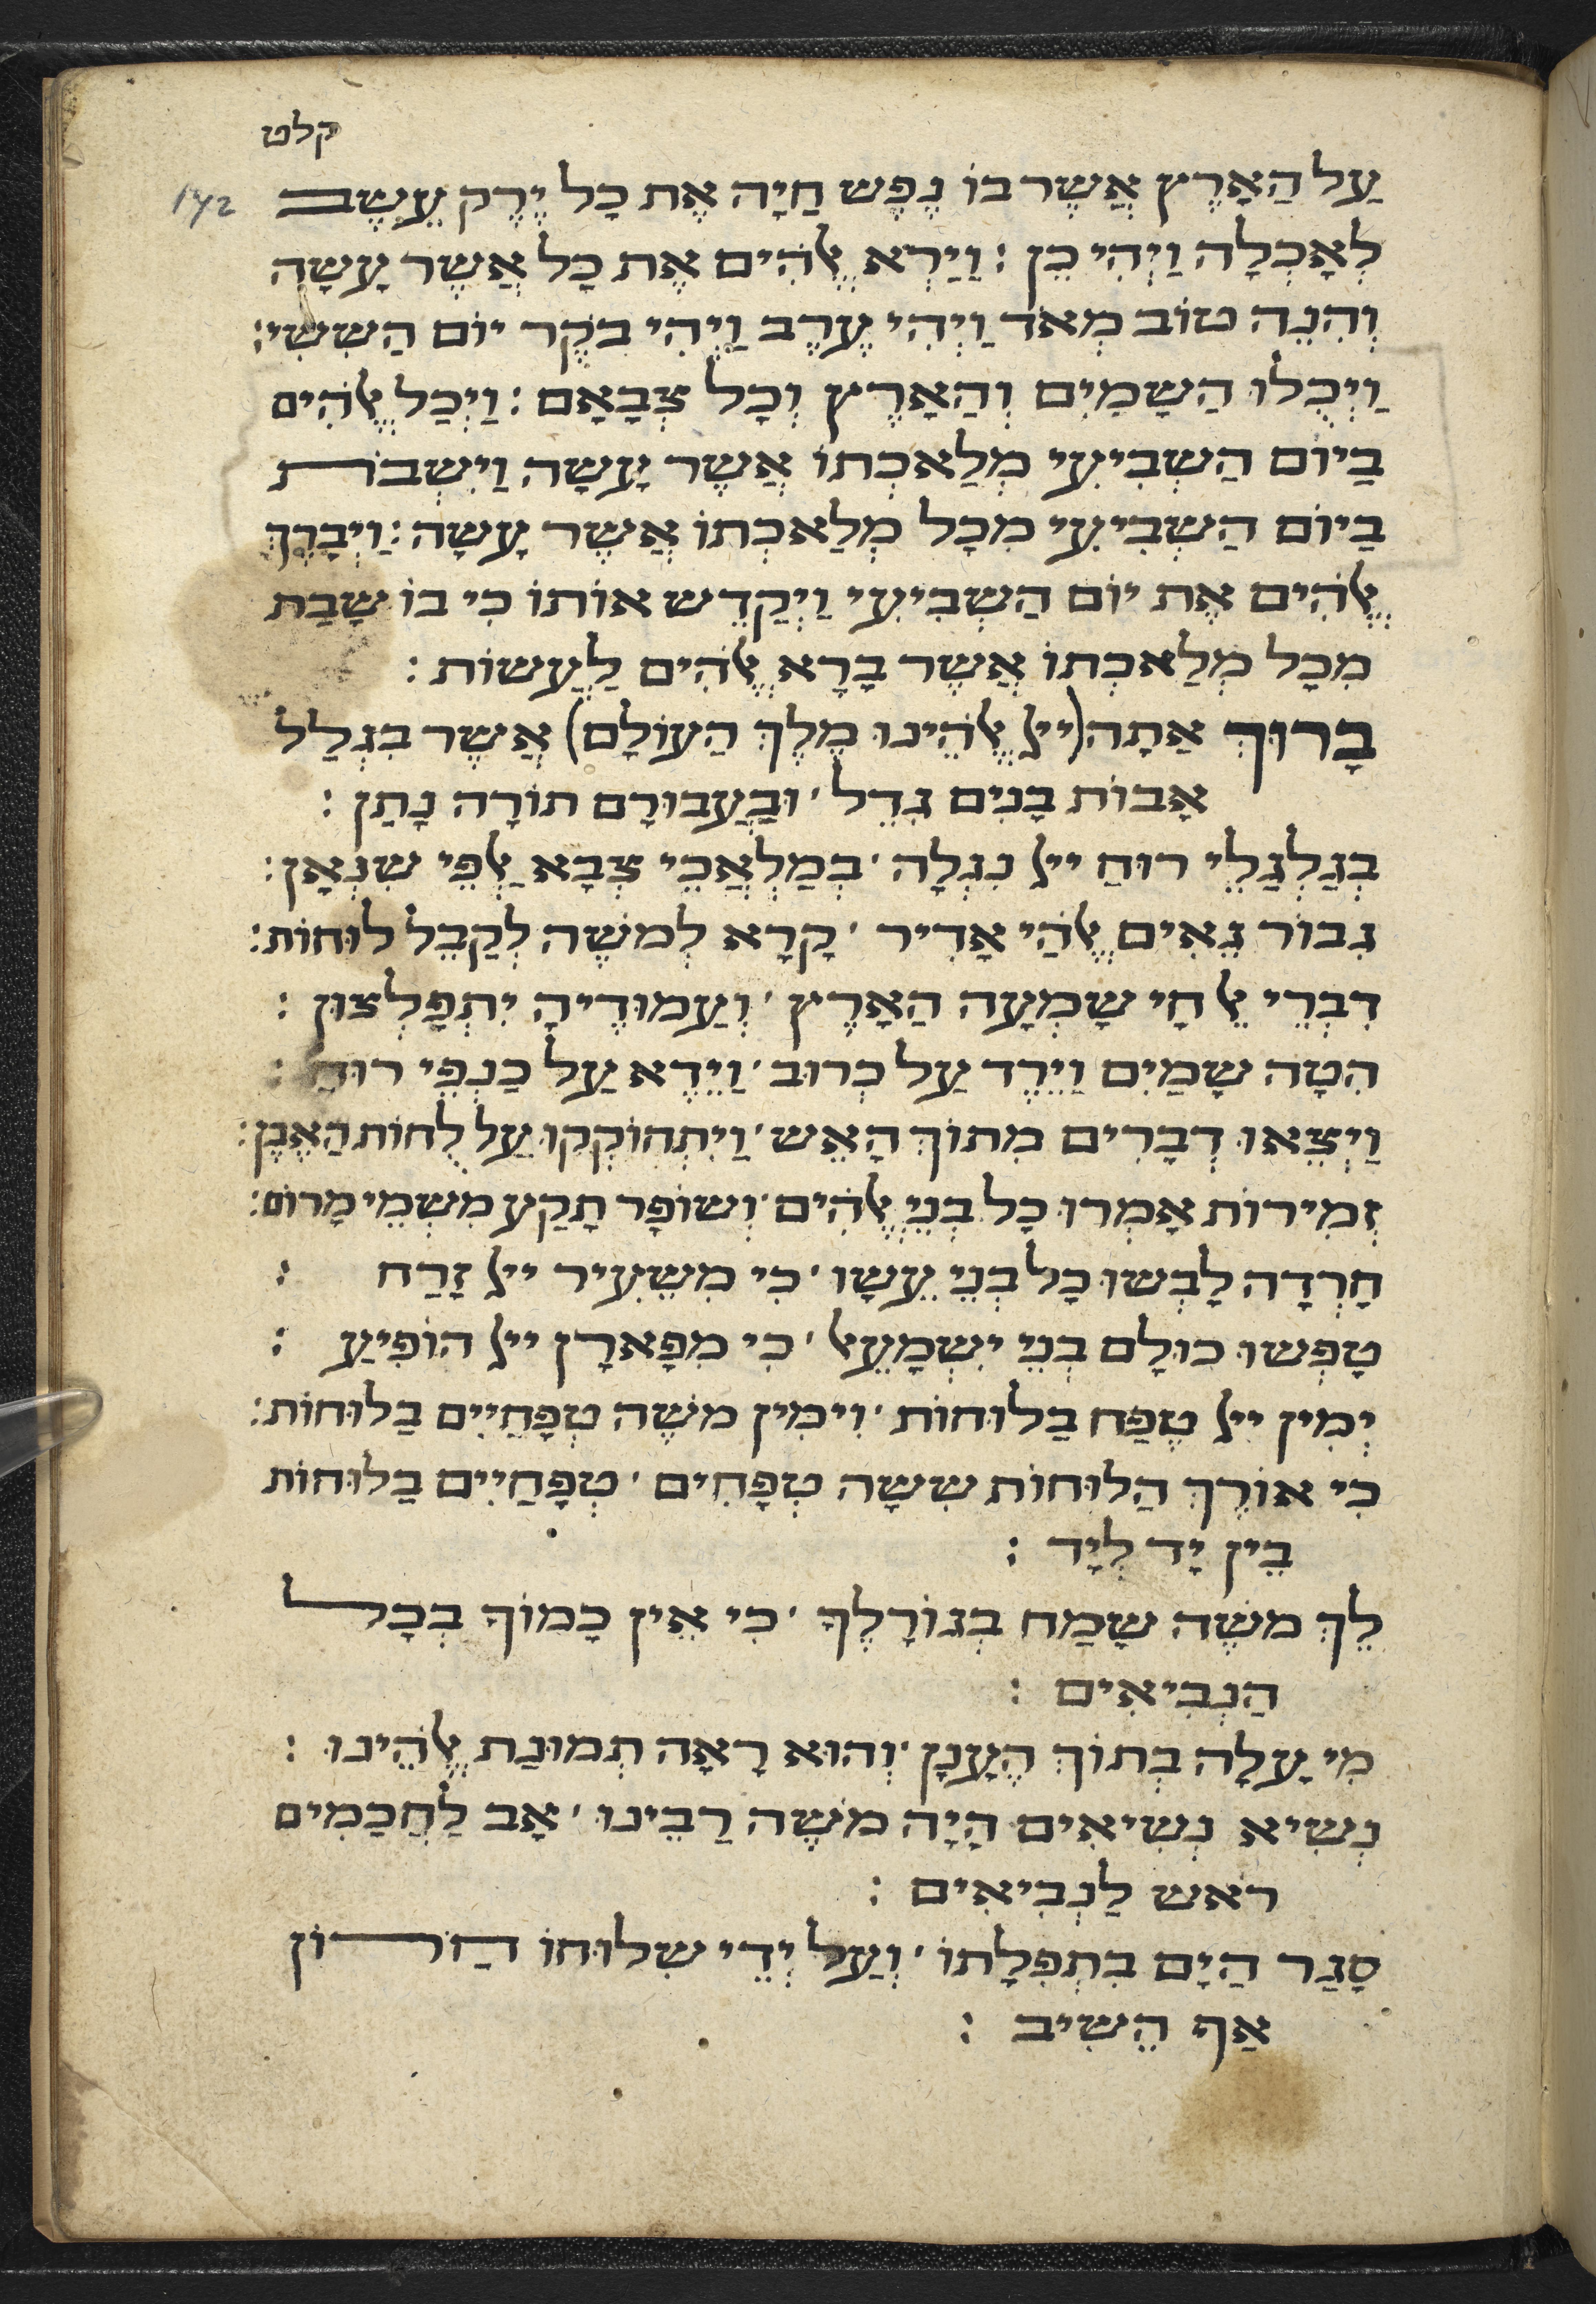 קלט
172
עַל הָאָרֶץ אֲשֶר בוֹ נֶפֶש חַיָה אֶת כָל יֶרֶק עֵשֶב
לְאָכְלָה וַיְהִי כֵן : וַיַרְא אֱלֹהִים אֶת כָל אֲשֶר עָשָה
וְהִנֵה טוֹב מְאֹד וַיְהִי עֶרֶב וַיְהִי בֹקֶר יוֹם הַשִשִי :
וַיְכֻלוּ הַשָמַיִם וְהָאָרֶץ וְכָל צְבָאָם : וַיְכַל אֱלֹהִים
בַיוֹם הַשְבִיעִי מְלַאכְתוֹ אֲשֶר עָשָה וַיִשְבֹת
בַיוֹם הַשְבִיעִי מִכָל מְלַאכְתוֹ אֲשֶר עָשָה : וַיְבָרֶךְ
אֱלֹהִים אֶת יוֹם הַשְבִיעִי וַיְקַדֵש אוֹתוֹ כִי בוֹ שָבַת
מִכָל מְלַאכְתוֹ אֲשֶר בָרָא אֱלֹהִים לַעֲשוֹת :
בָרוּךְ אַתָה (ייָ אֱלֹהֵינוּ מֶלֶךְ הָעוֹלָם) אֲשֶר בִגְלַל
אָבוֹת בָנִים גִדֵל ׳ וּבַעֲבוּרָם תוֹרָה נָתַן :
בְגַלְגַלֵי רוּחַ ייָ נִגְלָה ׳ בְמַלְאֲכֵי צְבָא אַלְפֵי שִנְאָן :
גִבוֹר גֵאִים אֱלֹהַי אַדִיר ׳ קָרָא לְמֹשֶה לְקַבֵל לוּחוֹת :
דִבְרֵי אֵל חָי שָמְעָה הָאָרֶץ ׳ וְעַמוּדֶיהָ יִתְפַלְצוּן :
הִטָה שָמַיִם וַיֵרֶד עַל כְרוּב ׳ וַיֵדֶא עַל כַנְפֵי רוּחַ :
וַיֵצְאוּ דְבָרִים מִתוֹךְ הָאֵש ׳ וַיִתְחוֹקְקוּ עַל לֻחוֹת הָאֶבֶן :
זְמִירוֹת אָמְרוּ כָל בְנֵי אֱלֹהִים ׳ וְשוֹפָר תָקַע מִשְמֵי מָרוֹם :
חָרְדָה לָבְשוּ כָל בְנֵי עֵשָו ׳ כִי מִשֵעִיר ייָ זָרַח :
טָפְשוּ כוּלָם בְנֵי יִשְמָעֵאל ׳ כִי מִפָארָן ייָ הוֹפִיעַ :
יְמִין ייָ טֶפַח בַלוּחוֹת ׳ וִימִין מֹשֶה טְפָחַיִים בַלוּחוֹת :
כִי אוֹרֶךְ הַלוּחוֹת שִשָה טְפָחִים ׳ טְפָחַיִים בַלוּחוֹת
בֵין יָד לְיָד :
לֵךְ מֹשֶה שָמַח בְגוֹרָלֶךָ ׳ כִי אֵין כָמוֹךָ בְכָל
הַנְבִיאִים :
מִי עָלָה בְתוֹךְ הֶעָנָן ׳ וְהוּא רָאָה תְמוּנַת אֱלֹהֵינוּ :
נְשִיא נְשִיאִים הָיָה מֹשֶה רַבֵינוּ ׳ אָב לַחֲכָמִים
רֹאש לַנְבִיאִים :
סָגַר הַיָם בִתְפִלָתוֹ ׳ וְעַל יְדֵי שִלוּחוֹ חֲרוֹן
אַף הֵשִיב :